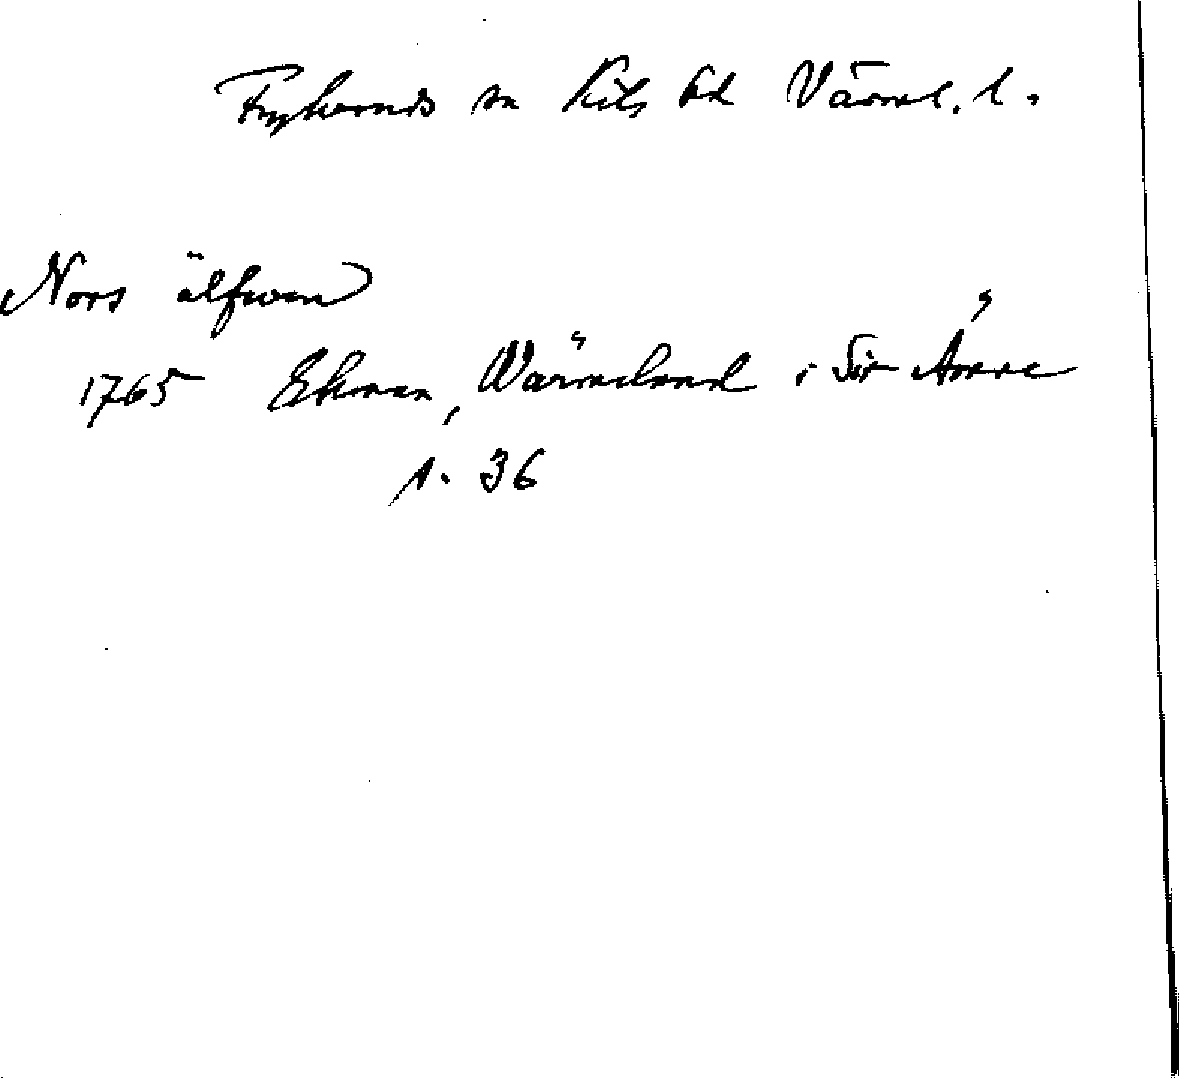 Frykerud sn Kils hd Värml. l.
Nors älfwen
1765 Ekman, Wärmeland i Sitt Ämne
s. 36